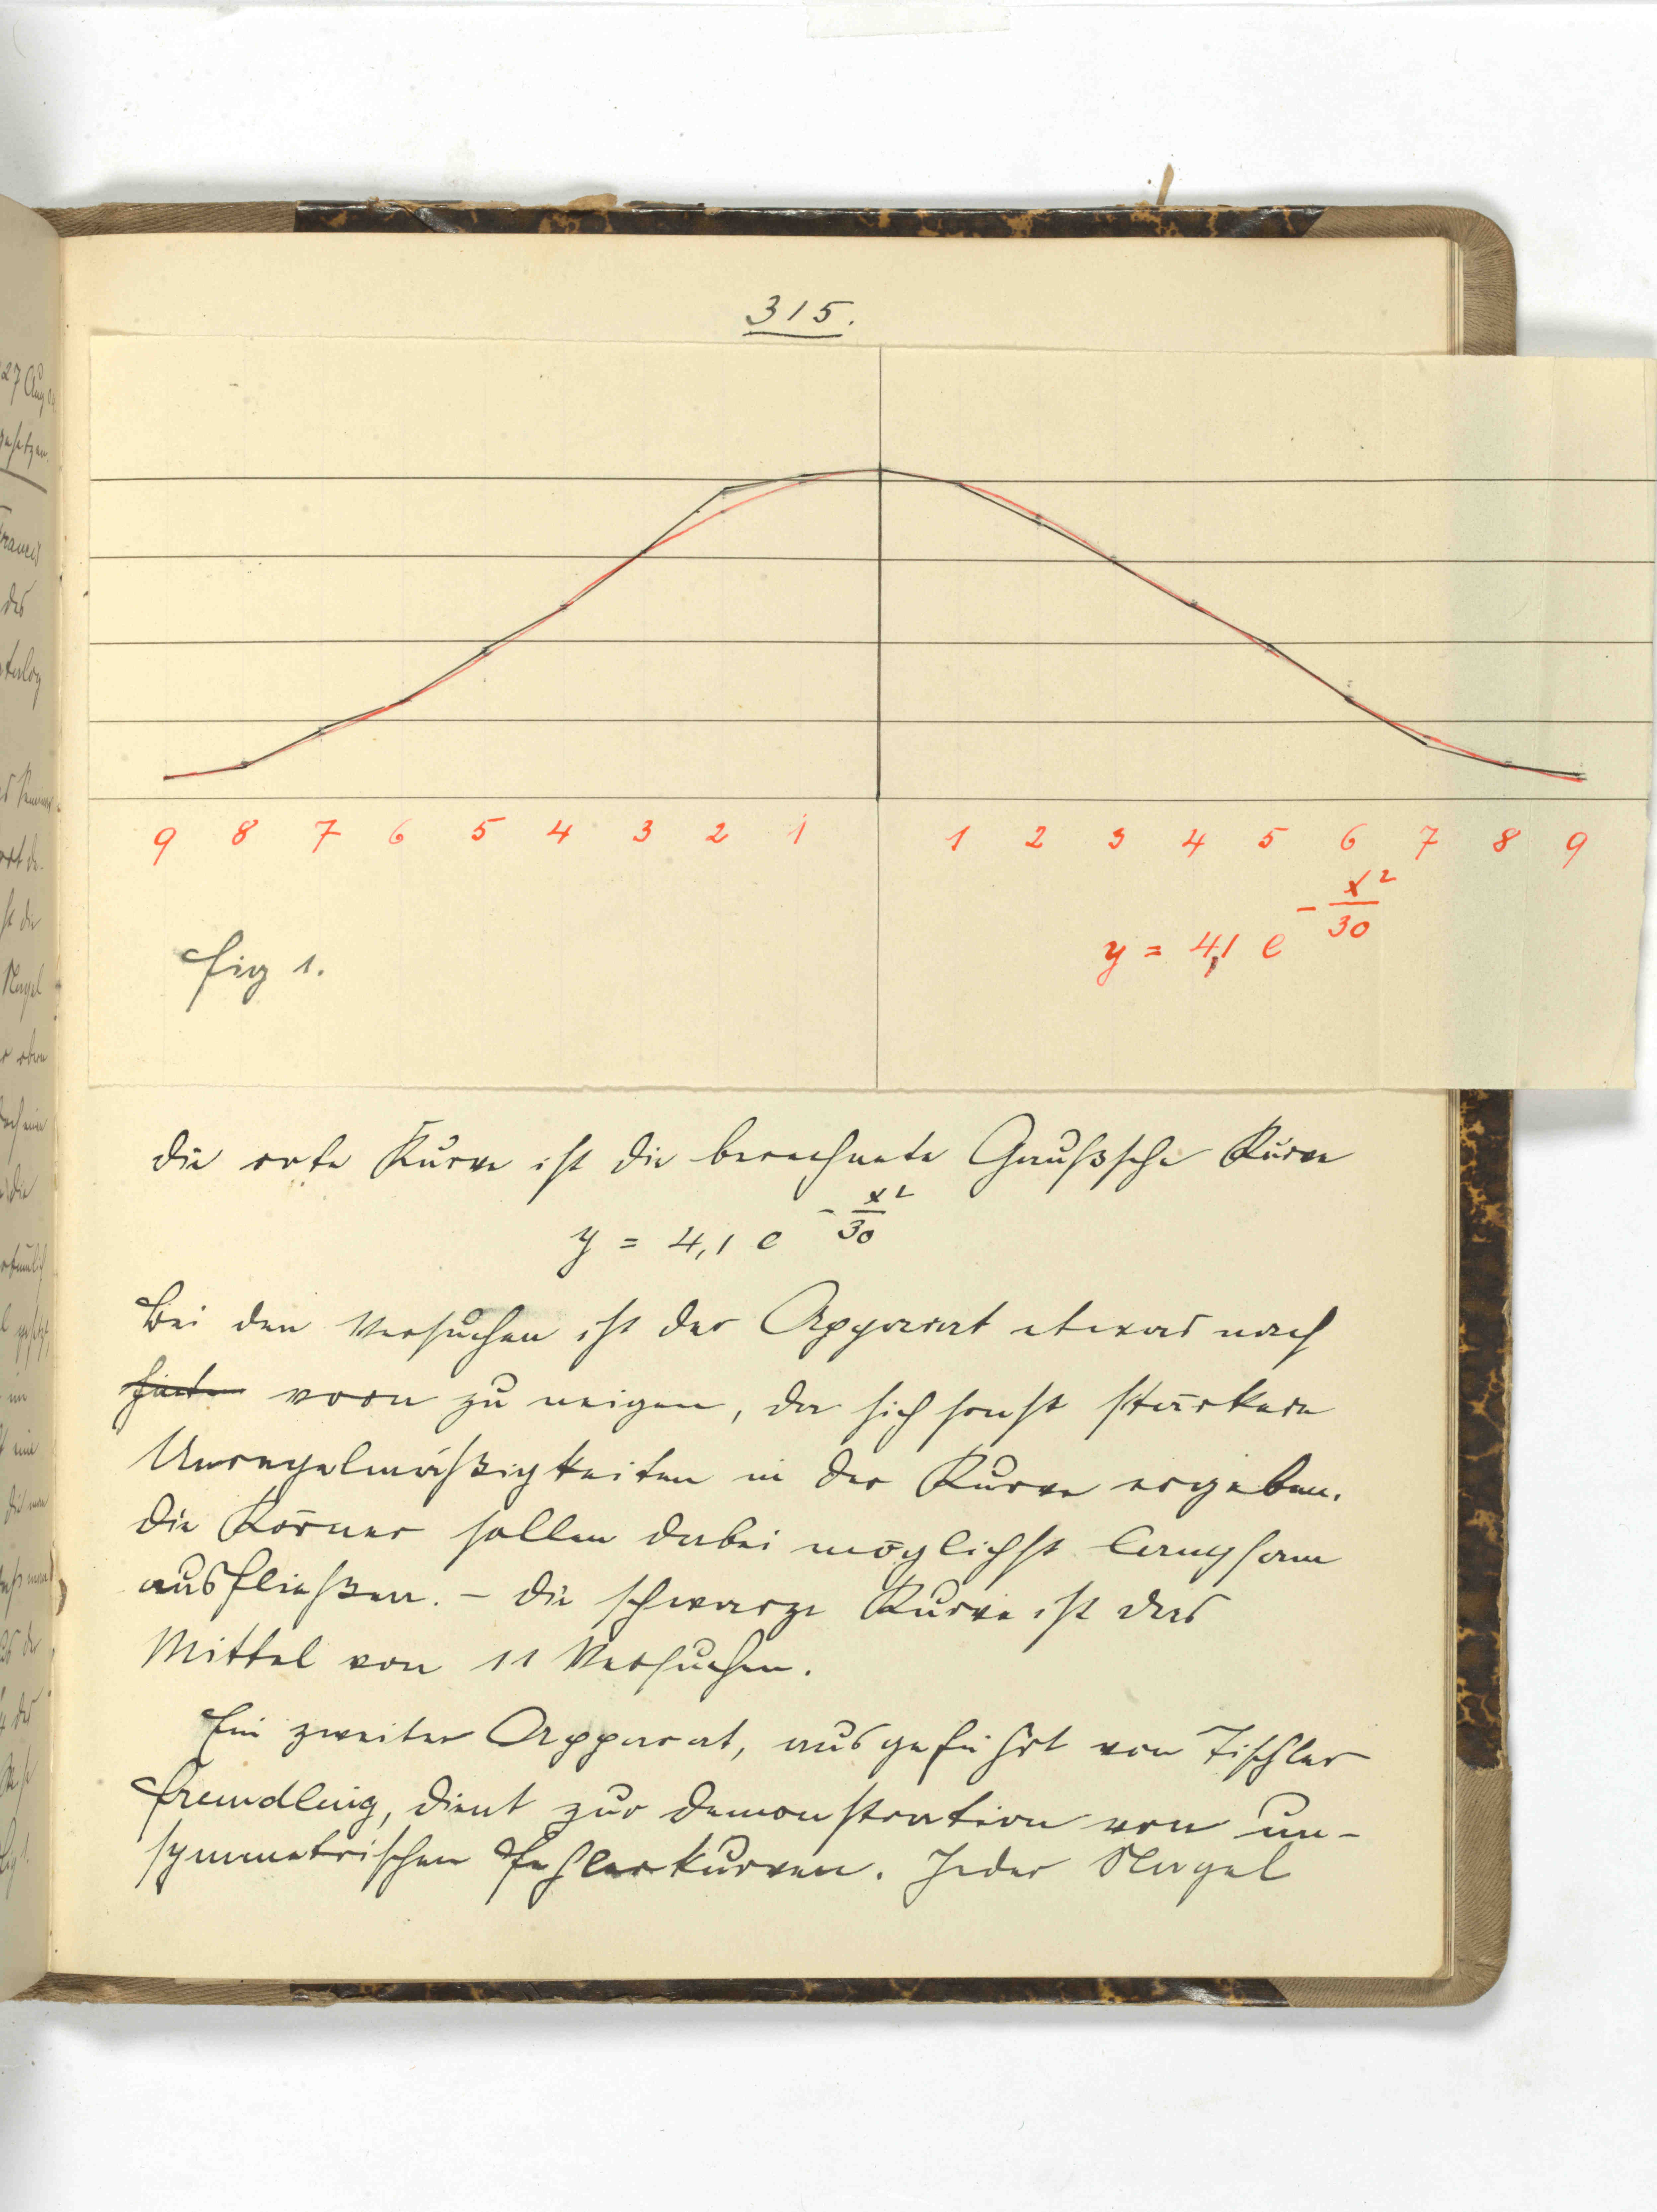 315.
9 8 7 6 5 4 3 2 1 1 2 3 4 5 6 7 8 9
y = 4,1 e^{-x²/30}
Fig 1.
Die rote Kurve ist die berechnete Gaußsche Kurve
y = 4,1 e^{-x²/30}
Bei den Versuchen ist der Apparat etwas nach
hinten vorn zu neigen, da sich sonst stärkere
Unregelmäßigkeiten in der Kurve ergeben.
Die Körner sollen dabei möglichst langsam
ausfließen. – Die schwarze Kurve ist das
Mittel von 11 Versuchen.
Ein zweiter Apparat, ausgeführt von Tischler
Fremdling, dient zur Demonstration von un-
symmetrischen Fehlerkurven. Jeder Nagel
27 Aug
Francis
des